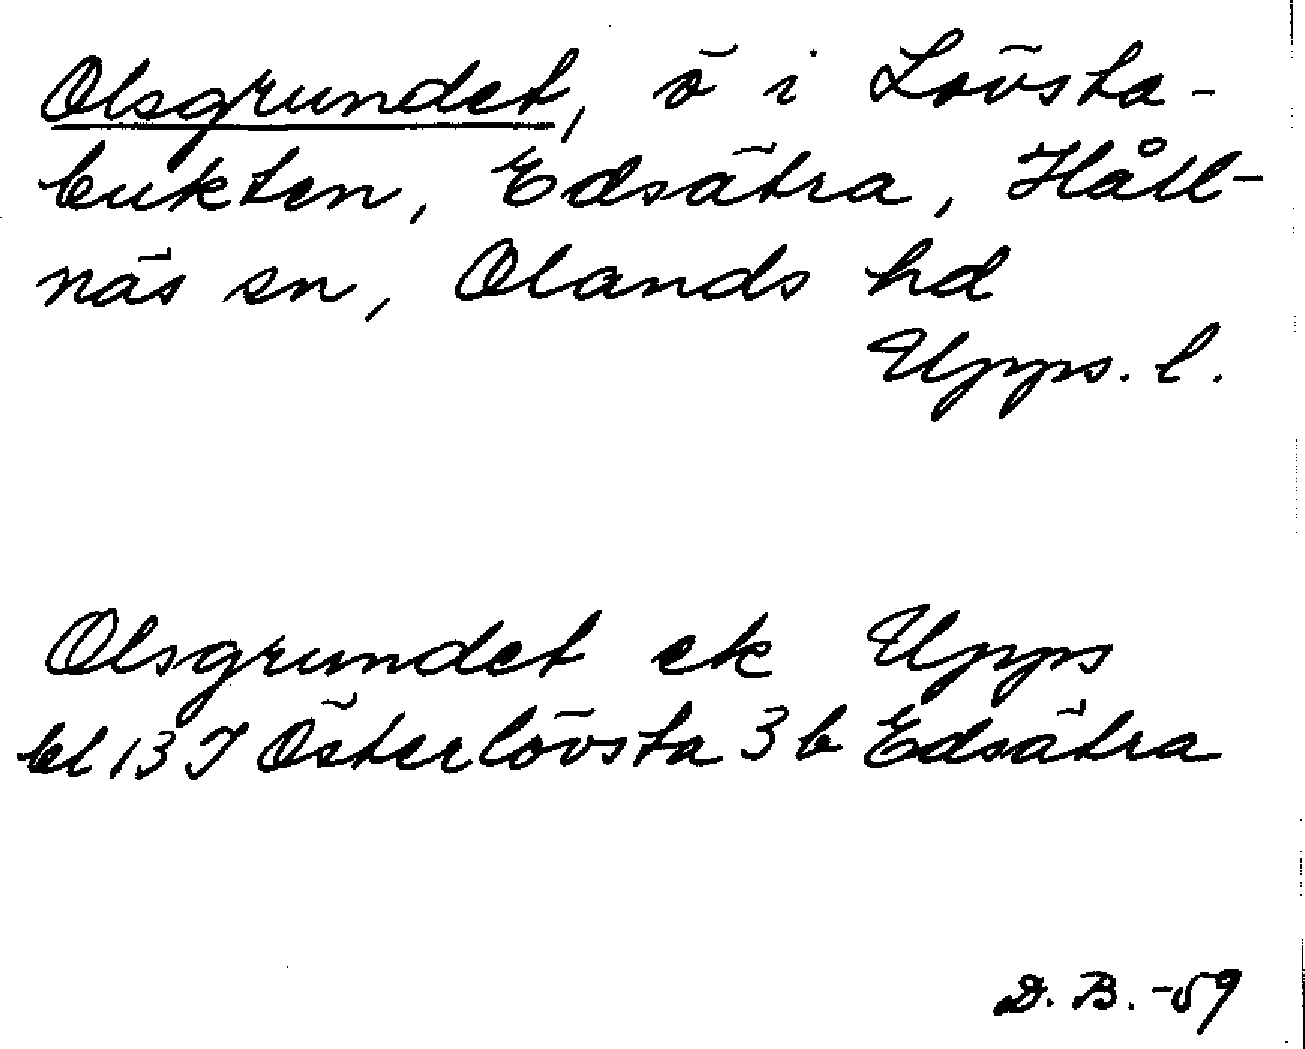 Olsgrundet, ö i Lövsta-
bukten, Edsätra, Håll-
näs sn, Olands hd
Upps. l.
Olsgrundet ek Upps
bl 13 I Österlövsta 3 b Edsätra
D. B. -59